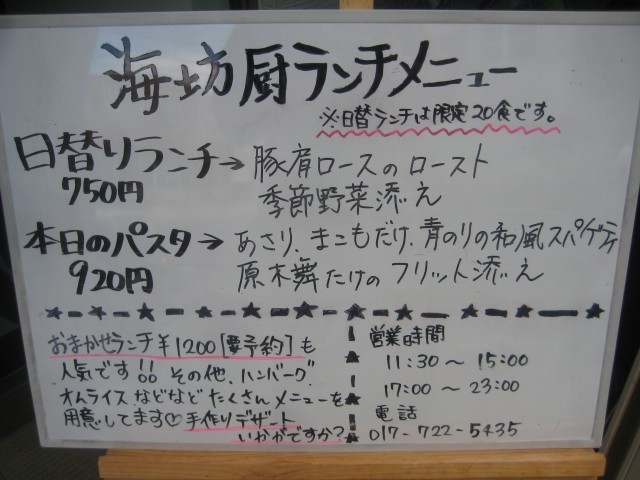 海坊厨ランチメニュー
※日替ランチは限定20食です。
日替りランチ→豚肩ロースのロースト
750円 季節野菜添え
本日のパスタ→あさり、まこもだけ、青のりの和風スパゲティ
920円 原木舞たけのフリット添え
おまかせランチ¥1200[要予約]も
人気です!!その他、ハンバーグ
オムライスなどなどたくさんメニューを
用意してます♡手作りデザート
いかがですか?
営業時間
11:30〜15:00
17:00〜23:00
電話
017-722-5435